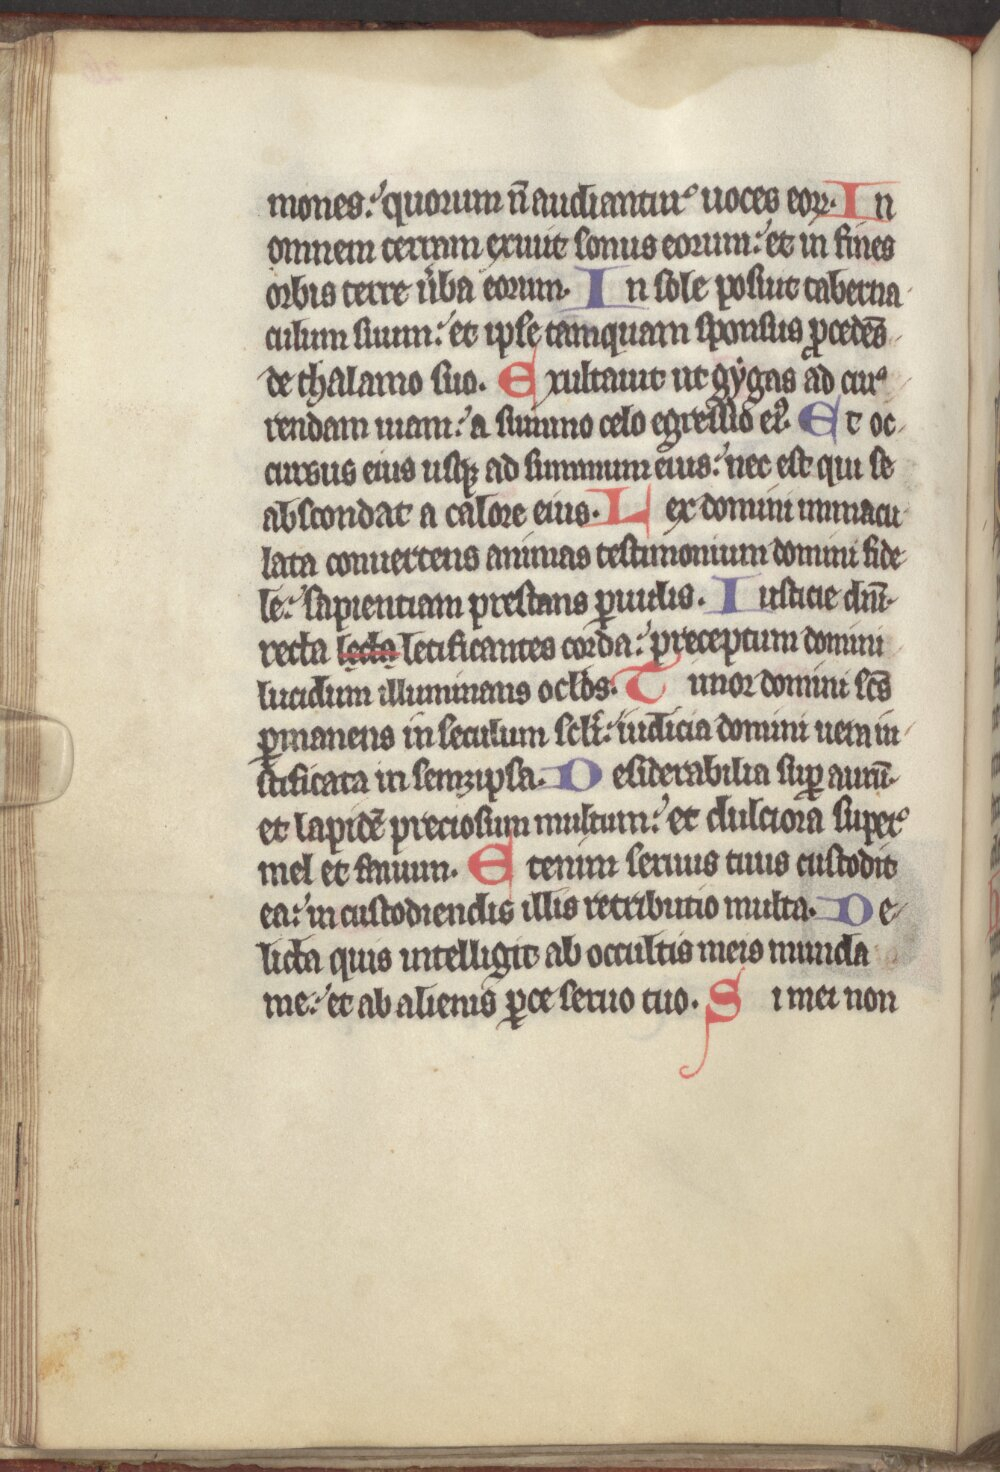 mones: quorum n̄ audiantur uoces eoꝝ. In
omnem terram exiuit sonus eorum: et in fines
orbis terre ūba eorum. In sole posiut taberna
culum suum: et ipse tamquam sponsus ꝓcedēs
de thalamo suo. Exultauit ut gygas ad cur
rendam uiam: a summo celo egressio eiꝰ. Et oc
cursus eius usqꝫ ad summum eius: nec est qui se
abscondat a calore eius. Lex domini immacu
lata conuertens animas testimonium domini fide
le: sapientiam prestans ꝑuulis. Iusticie dn̄i
recta lecta letificantes corda: preceptum domini
lucidum illuminans oclōs. Timor domini scs̄
ꝑmanens in seculum sclī: iudicia domini uera iu
stificata in semꝫipsa. Desiderabilia suꝑ aurū
et lapidē preciosum multum: et dulciora super
mel et fauum. Etenim seruus tuus custodit
ea: in custodiendis illis retributio multa. De
licta quis intelligit ab occultis meis munda
me: et ab alienis ꝑce seruo tuo. Si mei non